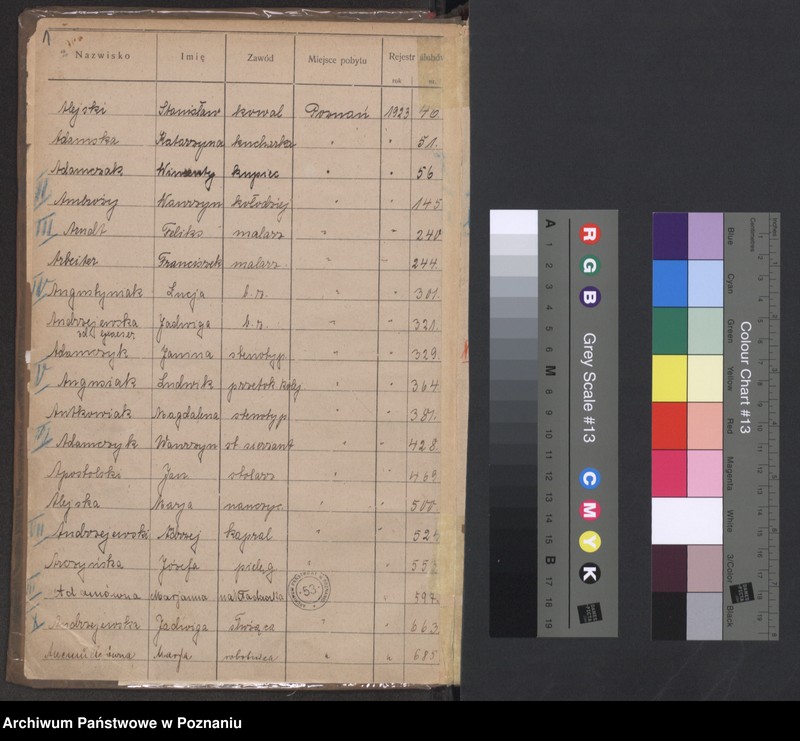 1
Nazwisko Imię Zawód Miejsce pobytu Rejestr ślubów
rok nr.
Alejski Stanisław kowal Poznań 1923 46
Adamska Katarzyna kucharka " " 51.
Adamczak Wincenty kupiec " " 56
II Ambroży Wawrzyn kołodziej " " 145
III Arndt Feliks malarz " " 240
Arbeiter Franciszek malarz " " 244.
IV Augustyniak Łucja b.z. " " 301.
Andrzejewska Jadwiga b.z. " " 321.
Adamczyk Janina stenotyp. " " 329.
V Augusiak Ludwik przetok. kolej. " " 364
Antkowiak Magdalena stenotyp. " " 381.
VI Adamczyk Wawrzyn st. sierżant " " 428.
Apostolski Jan stolarz " " 469
Alejska Marja " 500.
VII Andrzejewski kapral " "
Józefa pielęg. " "
Adamówna Marjanna 53 "
X Andrzejewska Jadwiga służąca " " 663.
Marja robotnica " " 685
A 1 2 3 4 5 6 M 8 9 10 11 12 13 14 15 B 17 18 19
R G B
Grey Scale #13
C M Y K
Blue Cyan Green Yellow Red Magenta White 3/Color Black
Colour Chart #13
Centimetres Inches
Archiwum Państwowe w Poznaniu